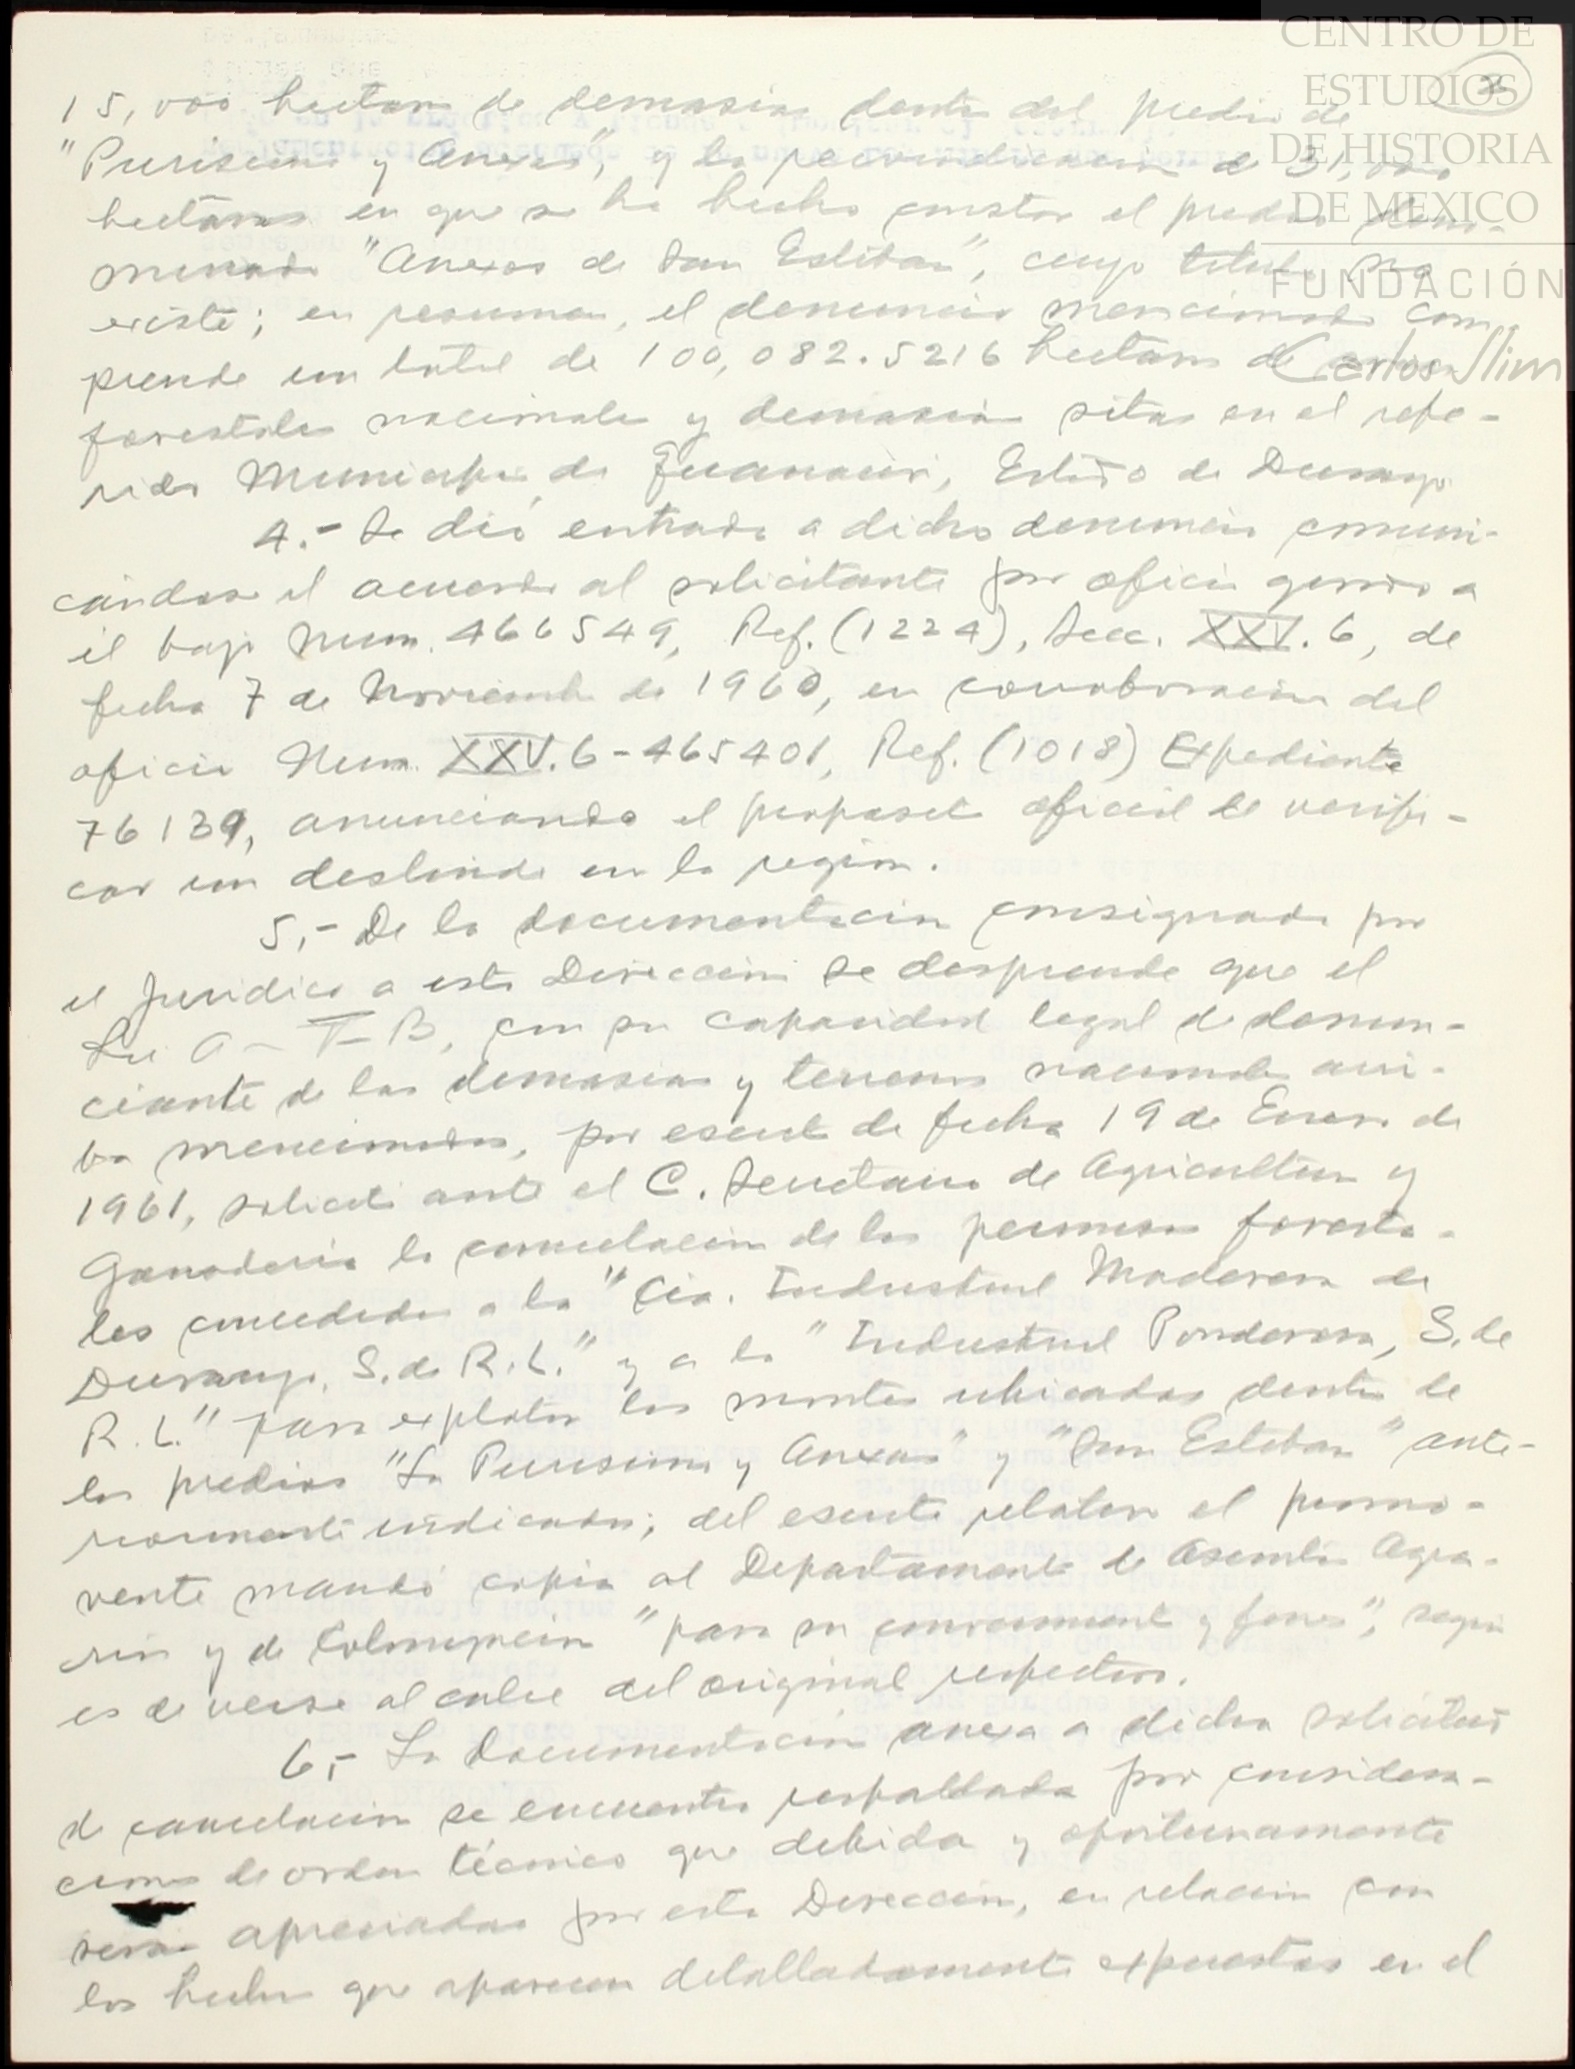 CENTRO DE
ESTUDIOS
DE HISTORIA
DE MEXICO
FUNDACIÓN
Carlos Slim
15,000 hectáreas de demasías dentro del predio de
"Purísima y Anexas", y la reivindicación de 31,000
hectáreas en que se ha hecho constar el predio deno-
minado "Anexos de San Esteban", cuyo título no
existe; en resumen, el denuncio mencionado com-
prende un total de 100,082.5216 hectáreas de
forestales nacionales y demasías sitas en el refe-
rido Municipio de Guanaceví, Estado de Durango
4.- Se dió entrada a dicho denuncio comuni-
cándose el acuerdo al solicitante por oficio girado a
él bajo Núm. 466549, Ref. (1224), Secc. XXV.6, de
fecha 7 de Noviembre de 1960, en corroboración del
oficio Núm. XXV.6-465401, Ref. (1018) Expediente
76139, anunciando el propósito oficial de verifi-
car un deslinde en la región.
5.- De la documentación consignada por
el Jurídico a esta Dirección se desprende que el
Lic A- T- B, con su capacidad legal de denun-
ciante de las demasías y terrenos nacionales arri-
ba mencionados, por escrito de fecha 19 de Enero de
1961, solicitó ante el C. Secretario de Agricultura y
Ganadería la cancelación de los permisos foresta-
les concedidos a la "Cía. Industrial Maderera de
Durango, S. de R. L." y a la "Industrial Ponderosa, S. de
R. L." para explotar los montes ubicados dentro de
los predios "La Purísima y Anexas" y "San Esteban" ante-
riormente indicados; del escrito relatado el promo-
vente mandó copia al Departamento de Asuntos Agra-
rios y de Colonización "para su conocimiento y fines", según
es de verse al calce del original respectivo.
6.- La Documentación anexa a dicha solicitud
de cancelación se encuentra respaldada por considera-
ciones de orden técnico que debida y oportunamente
serán apreciadas por esta Dirección, en relación con
los hechos que aparecen detalladamente expuestos en el